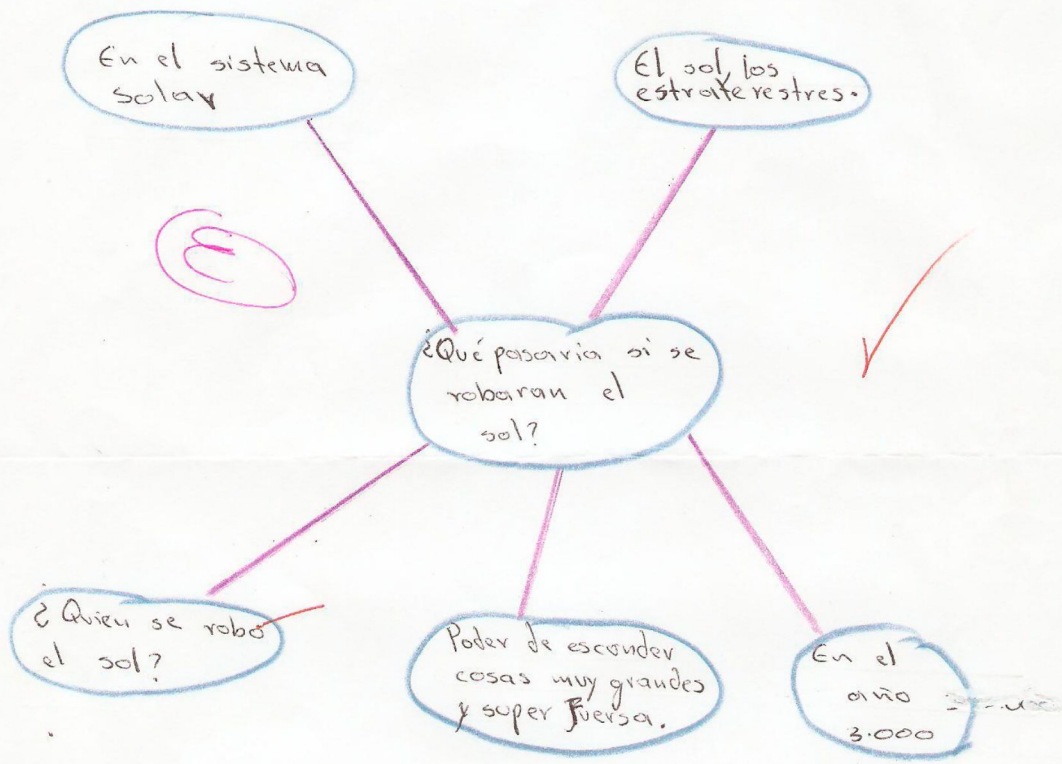 En el sistema
solar
El sol, los
estraterestres.
¿Qué pasaria si se
robaran el
sol?
¿Quien se robo
el sol?
Poder de esconder
cosas muy grandes
y super fuersa.
En el
año
3.000